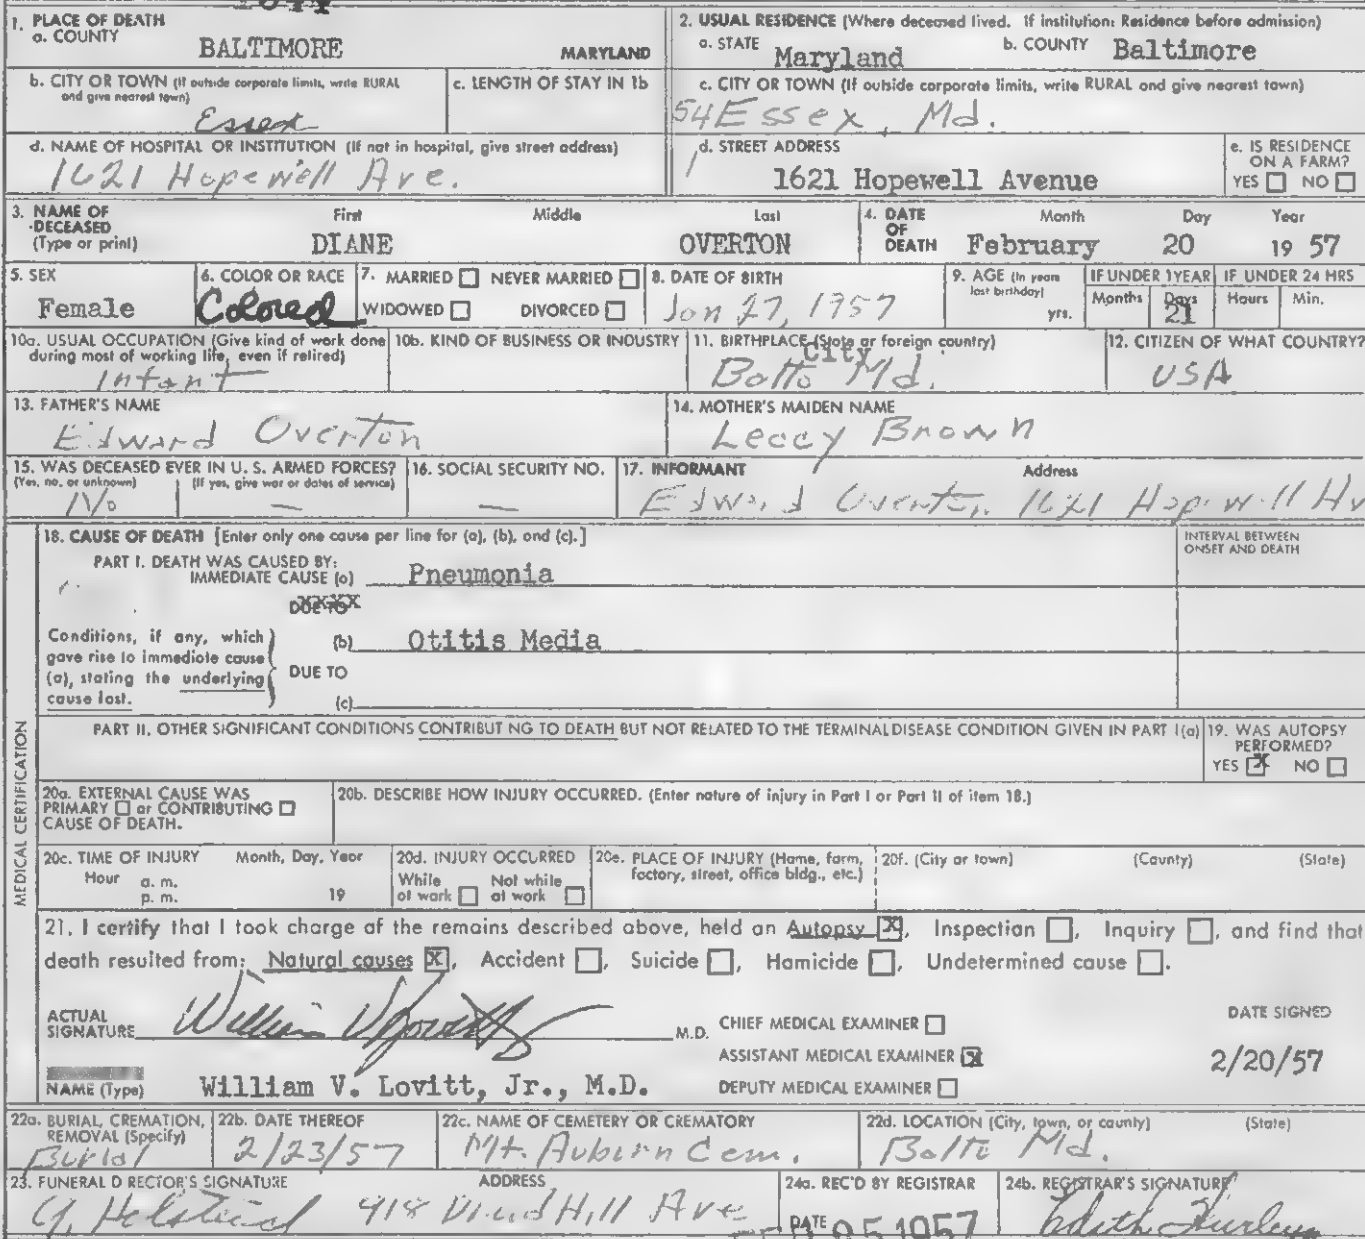 1. PLACE OF DEATH
a. COUNTY
BALTIMORE MARYLAND
2. USUAL RESIDENCE (Where deceased lived. If institution: Residence before admission)
a. STATE Maryland b. COUNTY Baltimore
b. CITY OR TOWN (If outside corporate limits, write RURAL and give nearest town)
Essex
c. LENGTH OF STAY IN 1b
c. CITY OR TOWN (If outside corporate limits, write RURAL and give nearest town)
54 Essex, Md.
d. NAME OF HOSPITAL OR INSTITUTION (If not in hospital, give street address)
1621 Hopewell Ave.
d. STREET ADDRESS
1621 Hopewell Avenue
e. IS RESIDENCE ON A FARM?
YES NO
3. NAME OF DECEASED (Type or print)
First Middle Last
DIANE OVERTON
4. DATE OF DEATH
Month Day Year
February 20 19 57
5. SEX
Female
6. COLOR OR RACE
Colored
7. MARRIED NEVER MARRIED
WIDOWED DIVORCED
8. DATE OF BIRTH
Jan 27, 1957
9. AGE (In years last birthday) yrs.
IF UNDER 1 YEAR
Months Days
21
IF UNDER 24 HRS
Hours Min.
10a. USUAL OCCUPATION (Give kind of work done during most of working life, even if retired)
Infant
10b. KIND OF BUSINESS OR INDUSTRY
11. BIRTHPLACE (State or foreign country)
City
Balto Md.
12. CITIZEN OF WHAT COUNTRY?
USA
13. FATHER'S NAME
Edward Overton
14. MOTHER'S MAIDEN NAME
Leccy Brown
15. WAS DECEASED EVER IN U. S. ARMED FORCES?
(Yes, no, or unknown) (If yes, give war or dates of service)
No —
16. SOCIAL SECURITY NO.
—
17. INFORMANT Address
Edward Overton, 1621 Hopewell Av
MEDICAL CERTIFICATION
18. CAUSE OF DEATH [Enter only one cause per line for (a), (b), and (c).]
INTERVAL BETWEEN ONSET AND DEATH
PART I. DEATH WAS CAUSED BY:
IMMEDIATE CAUSE (a) Pneumonia
DUE TO
Conditions, if any, which gave rise to immediate cause (a), stating the underlying cause last.
(b) Otitis Media
DUE TO
(c)
PART II. OTHER SIGNIFICANT CONDITIONS CONTRIBUT NG TO DEATH BUT NOT RELATED TO THE TERMINAL DISEASE CONDITION GIVEN IN PART I(a)
19. WAS AUTOPSY PERFORMED?
YES X NO
20a. EXTERNAL CAUSE WAS PRIMARY or CONTRIBUTING CAUSE OF DEATH.
20b. DESCRIBE HOW INJURY OCCURRED. (Enter nature of injury in Part I or Part II of item 18.)
20c. TIME OF INJURY Month, Day, Year
Hour a. m.
p. m. 19
20d. INJURY OCCURRED
While at work Not while at work
20e. PLACE OF INJURY (Home, farm, factory, street, office bldg., etc.)
20f. (City or town) (County) (State)
21. I certify that I took charge of the remains described above, held an Autopsy X, Inspection , Inquiry , and find that
death resulted from: Natural causes X, Accident , Suicide , Homicide , Undetermined cause .
ACTUAL SIGNATURE William V Lovitt M.D.
CHIEF MEDICAL EXAMINER
ASSISTANT MEDICAL EXAMINER X
DEPUTY MEDICAL EXAMINER
DATE SIGNED
2/20/57
NAME (Type) William V. Lovitt, Jr., M.D.
22a. BURIAL, CREMATION, REMOVAL (Specify)
Burial
22b. DATE THEREOF
2/23/57
22c. NAME OF CEMETERY OR CREMATORY
Mt. Auburn Cem.
22d. LOCATION (City, town, or county) (State)
Balto Md.
23. FUNERAL D RECTOR'S SIGNATURE ADDRESS
Halstead 918 Druid Hill Ave
24a. REC'D BY REGISTRAR
DATE 1957
24b. REGISTRAR'S SIGNATURE
Edith Hurley